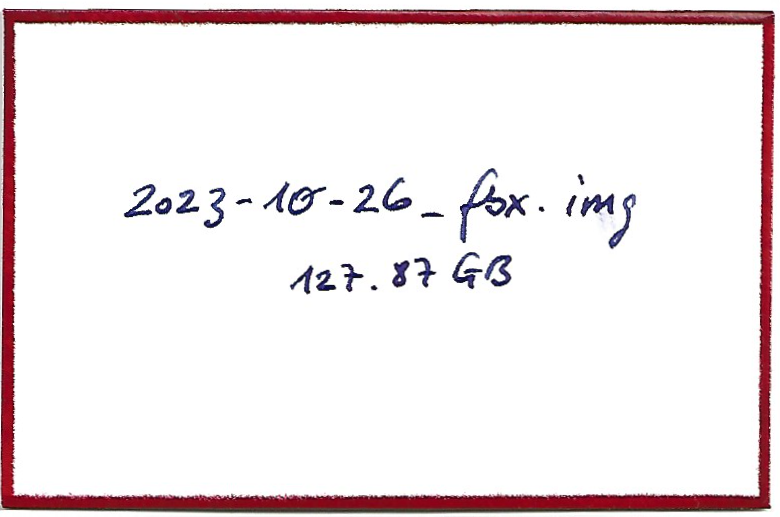 2023-10-26_fbx.img
127.87 GB